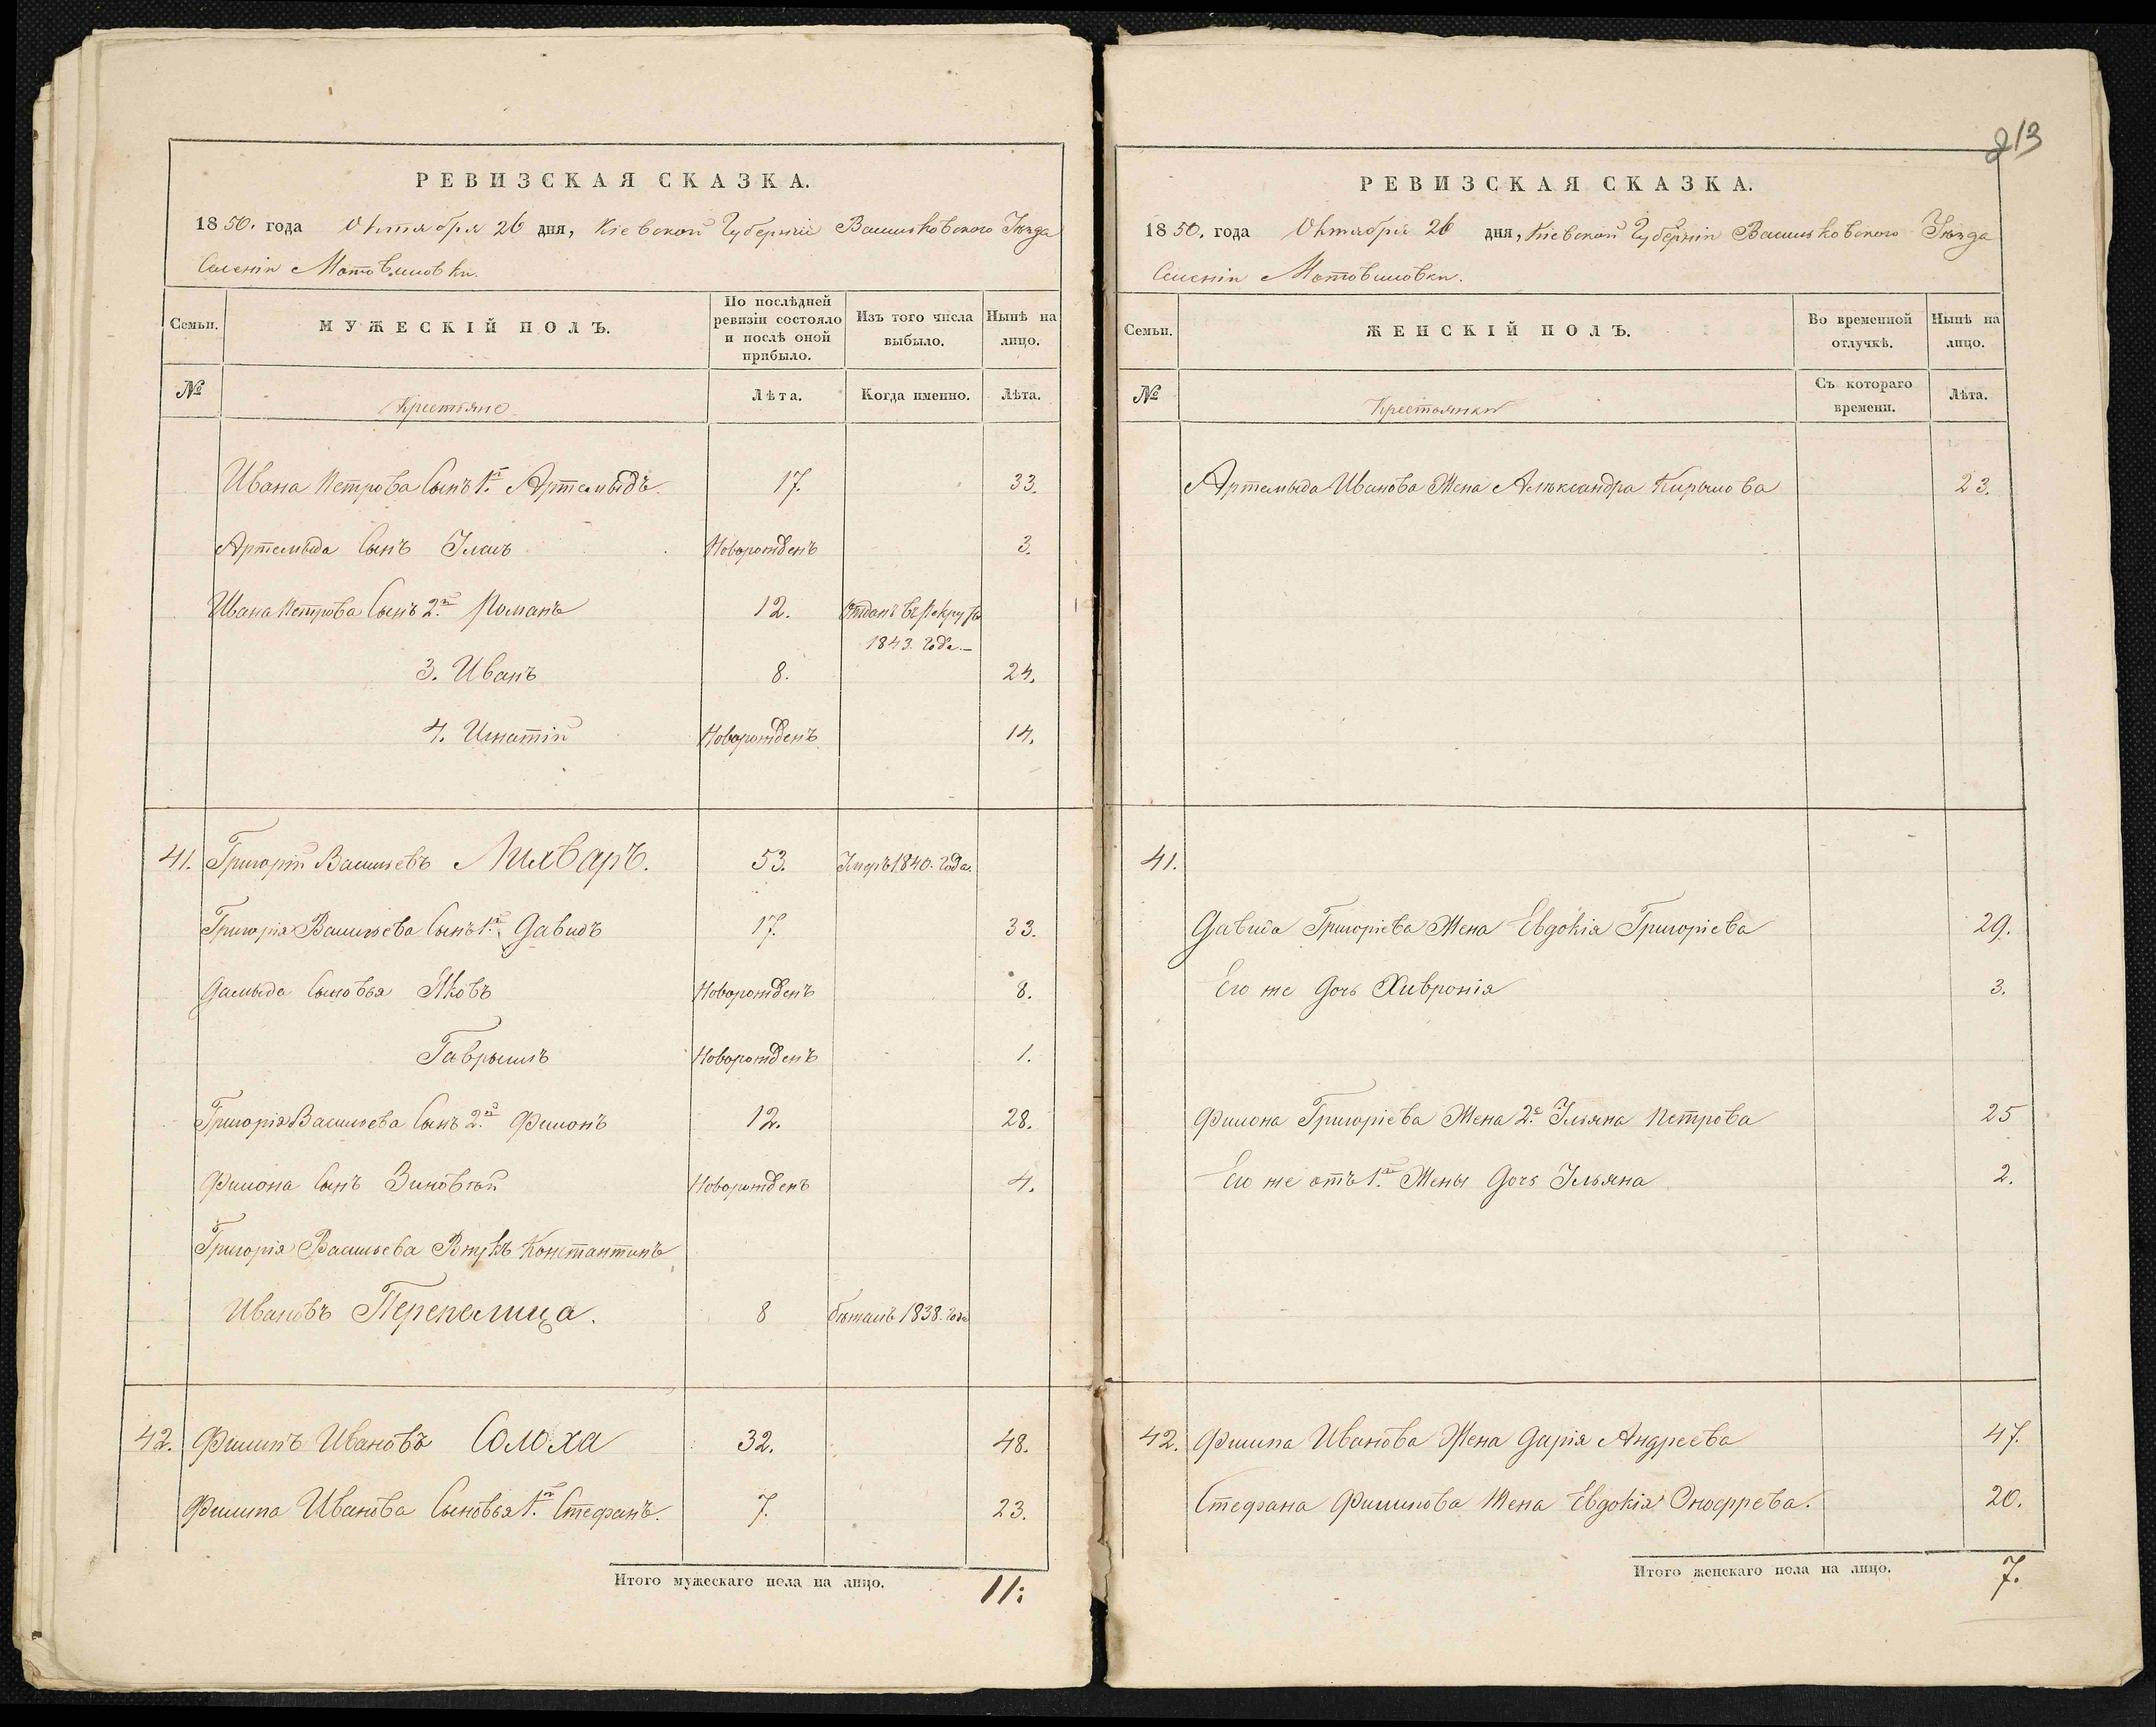 РЕВИЗСКАЯ СКАЗКА.
1850. года Октября 26 дня, Кіевской Губерніи Васильковского Уѣзда
Селенія Мотовиловки.
Семьи.
МУЖЕСКІЙ ПОЛЪ.
По послѣдней ревизіи состояло и послѣ оной прибыло.
Изъ того числа выбыло.
Нынѣ на лицо.
№
Крестьяне
Лѣта.
Когда именно.
Лѣта.
Ивана Петрова Сынъ 1й Артемыдъ 17. 33.
Артемыда Сынъ Улас Новорожденъ 3.
Ивана Петрова Сынъ 2й Романъ 12. Отданъ въ Рекруты
1843. Года.
3. Иванъ 8. 24.
4. Игнатій Новорожденъ 14.
41. Григорій Васильевъ Лихваръ. 53. Умеръ 1840. Года.
Григорія Васильева Сынъ 1й Давидъ 17. 33.
Давыда Сыновья Яковъ Новорожденъ 8.
Гаврыилъ Новорожденъ 1.
Григорія Васильева Сынъ 2й Филонъ 12. 28.
Филона Сынъ Зиновій Новорожденъ 4.
Григорія Васильева Внукъ Константинъ
Ивановъ Перепелица. 8 бѣжалъ 1838. Года
42. Филипъ Ивановъ Солоха 32. 48.
Филипа Иванова Сыновья 1й Стефанъ. 7. 23.
Итого мужескаго пола на лицо. 11:
213
РЕВИЗСКАЯ СКАЗКА.
1850. года Октября 26 дня, Кіевской Губерніи Васильковского Уѣзда
Селенія Мотовиловки.
Семьи.
ЖЕНСКІЙ ПОЛЪ.
Во временной отлучкѣ.
Нынѣ на лицо.
№
Крестьянки
Съ котораго времени.
Лѣта.
Артемыда Иванова Жена Алѣксандра Кирылова 23.
41.
Давида Григоріева Жена Евдокія Григоріева 29.
Его же Дочь Хивронія 3.
Филона Григоріева Жена 2я Ульяна Петрова 25
Его же отъ 1й Жены Дочь Ульяна 2.
42. Филипа Иванова Жена Дарія Андреева 47.
Стефана Филипова Жена Евдокія Оноффрева. 20.
Итого женскаго пола на лицо. 7.